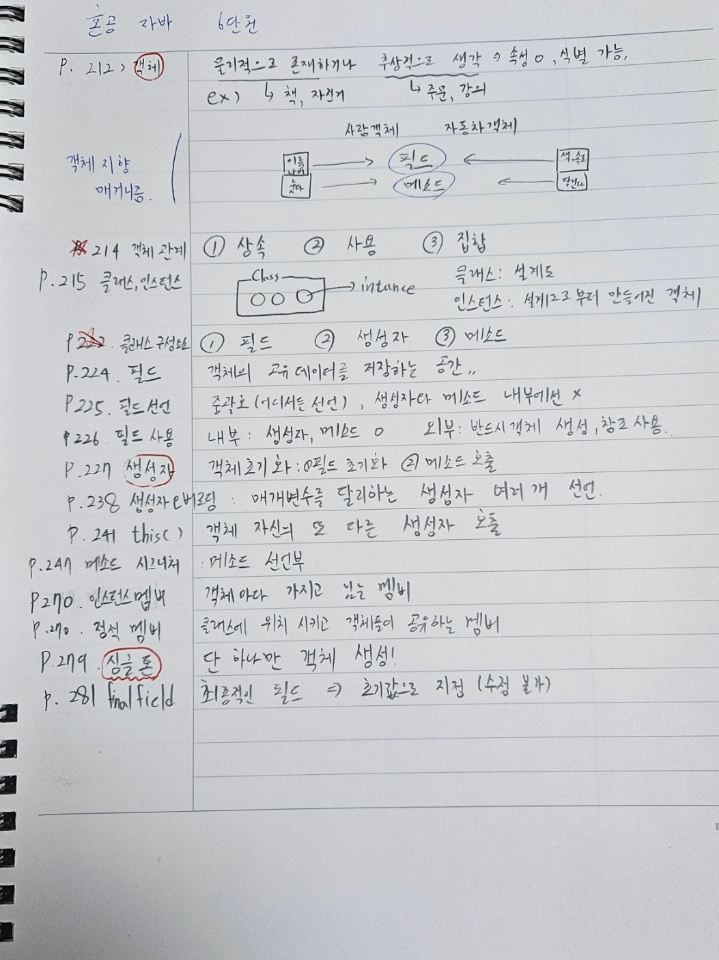 혼공 자바 6단원
P. 212> 객체 물리적으로 존재하거나 추상적으로 생각 → 속성 O, 식별 가능,
ex) ↳ 책, 자전거 ↳ 주문, 강의
사람객체 자동차객체
객체 지향 매커니즘.
이름 나이 → 필드 ← 색, 속도
웃다 → 메소드 ←
214 객체 관계 ① 상속 ② 사용 ③ 집합
P. 215 클래스, 인스턴스 Class → intance 클래스: 설계도
인스턴스: 설계도로부터 만들어진 객체
P 222. 클래스 구성요소 ① 필드 ② 생성자 ③ 메소드
P. 224. 필드 객체의 고유 데이터를 저장하는 공간,,
P 225. 필드 선언 중괄호 (어디서든 선언), 생성자와 메소드 내부에선 X
P 226. 필드 사용 내부: 생성자, 메소드 O 외부: 반드시 객체 생성, 참조 사용.
P. 227 생성자 객체 초기화: ① 필드 초기화 ② 메소드 호출
P. 238 생성자 오버로딩 : 매개변수를 달리하는 생성자 여러 개 선언.
P. 241 this() 객체 자신의 또 다른 생성자 호출
P. 247 메소드 시그니처 : 메소드 선언부
P 270. 인스턴스 멤버 객체마다 가지고 있는 멤버
P. 270. 정적 멤버 클래스에 위치 시키고 객체들이 공유하는 멤버
P. 279. 싱글톤 단 하나만 객체 생성!
P. 281 final field 최종적인 필드 ⇒ 초기값으로 지정 (수정 불가)